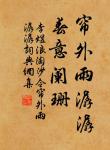 帘外雨潺潺
春意阑珊
李煜浪淘沙令帘外雨
潺潺词典网集